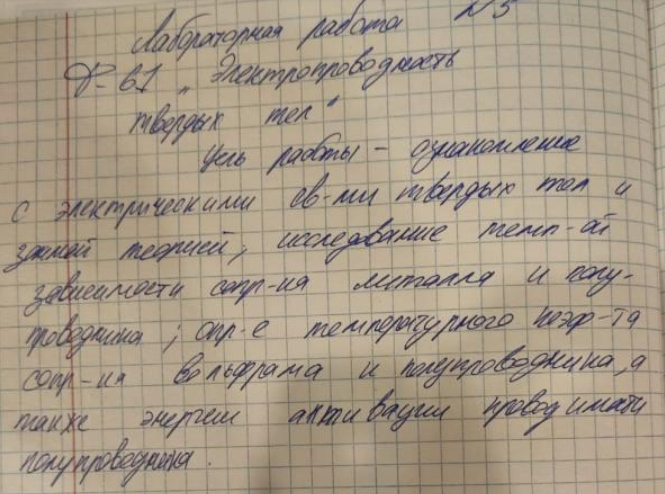 Лабораторная работа №5
Ф-61 „Электропроводность
твердых тел"
Цель работы – ознакомление
с электрическими св-ми твердых тел и
зонной теорией, исследование темп-ой
зависимости сопр-ия металла и полу-
проводника; опр-е температурного коэф-та
сопр-ия вольфрама и полупроводника, а
также энергии активации проводимости
полупроводника.